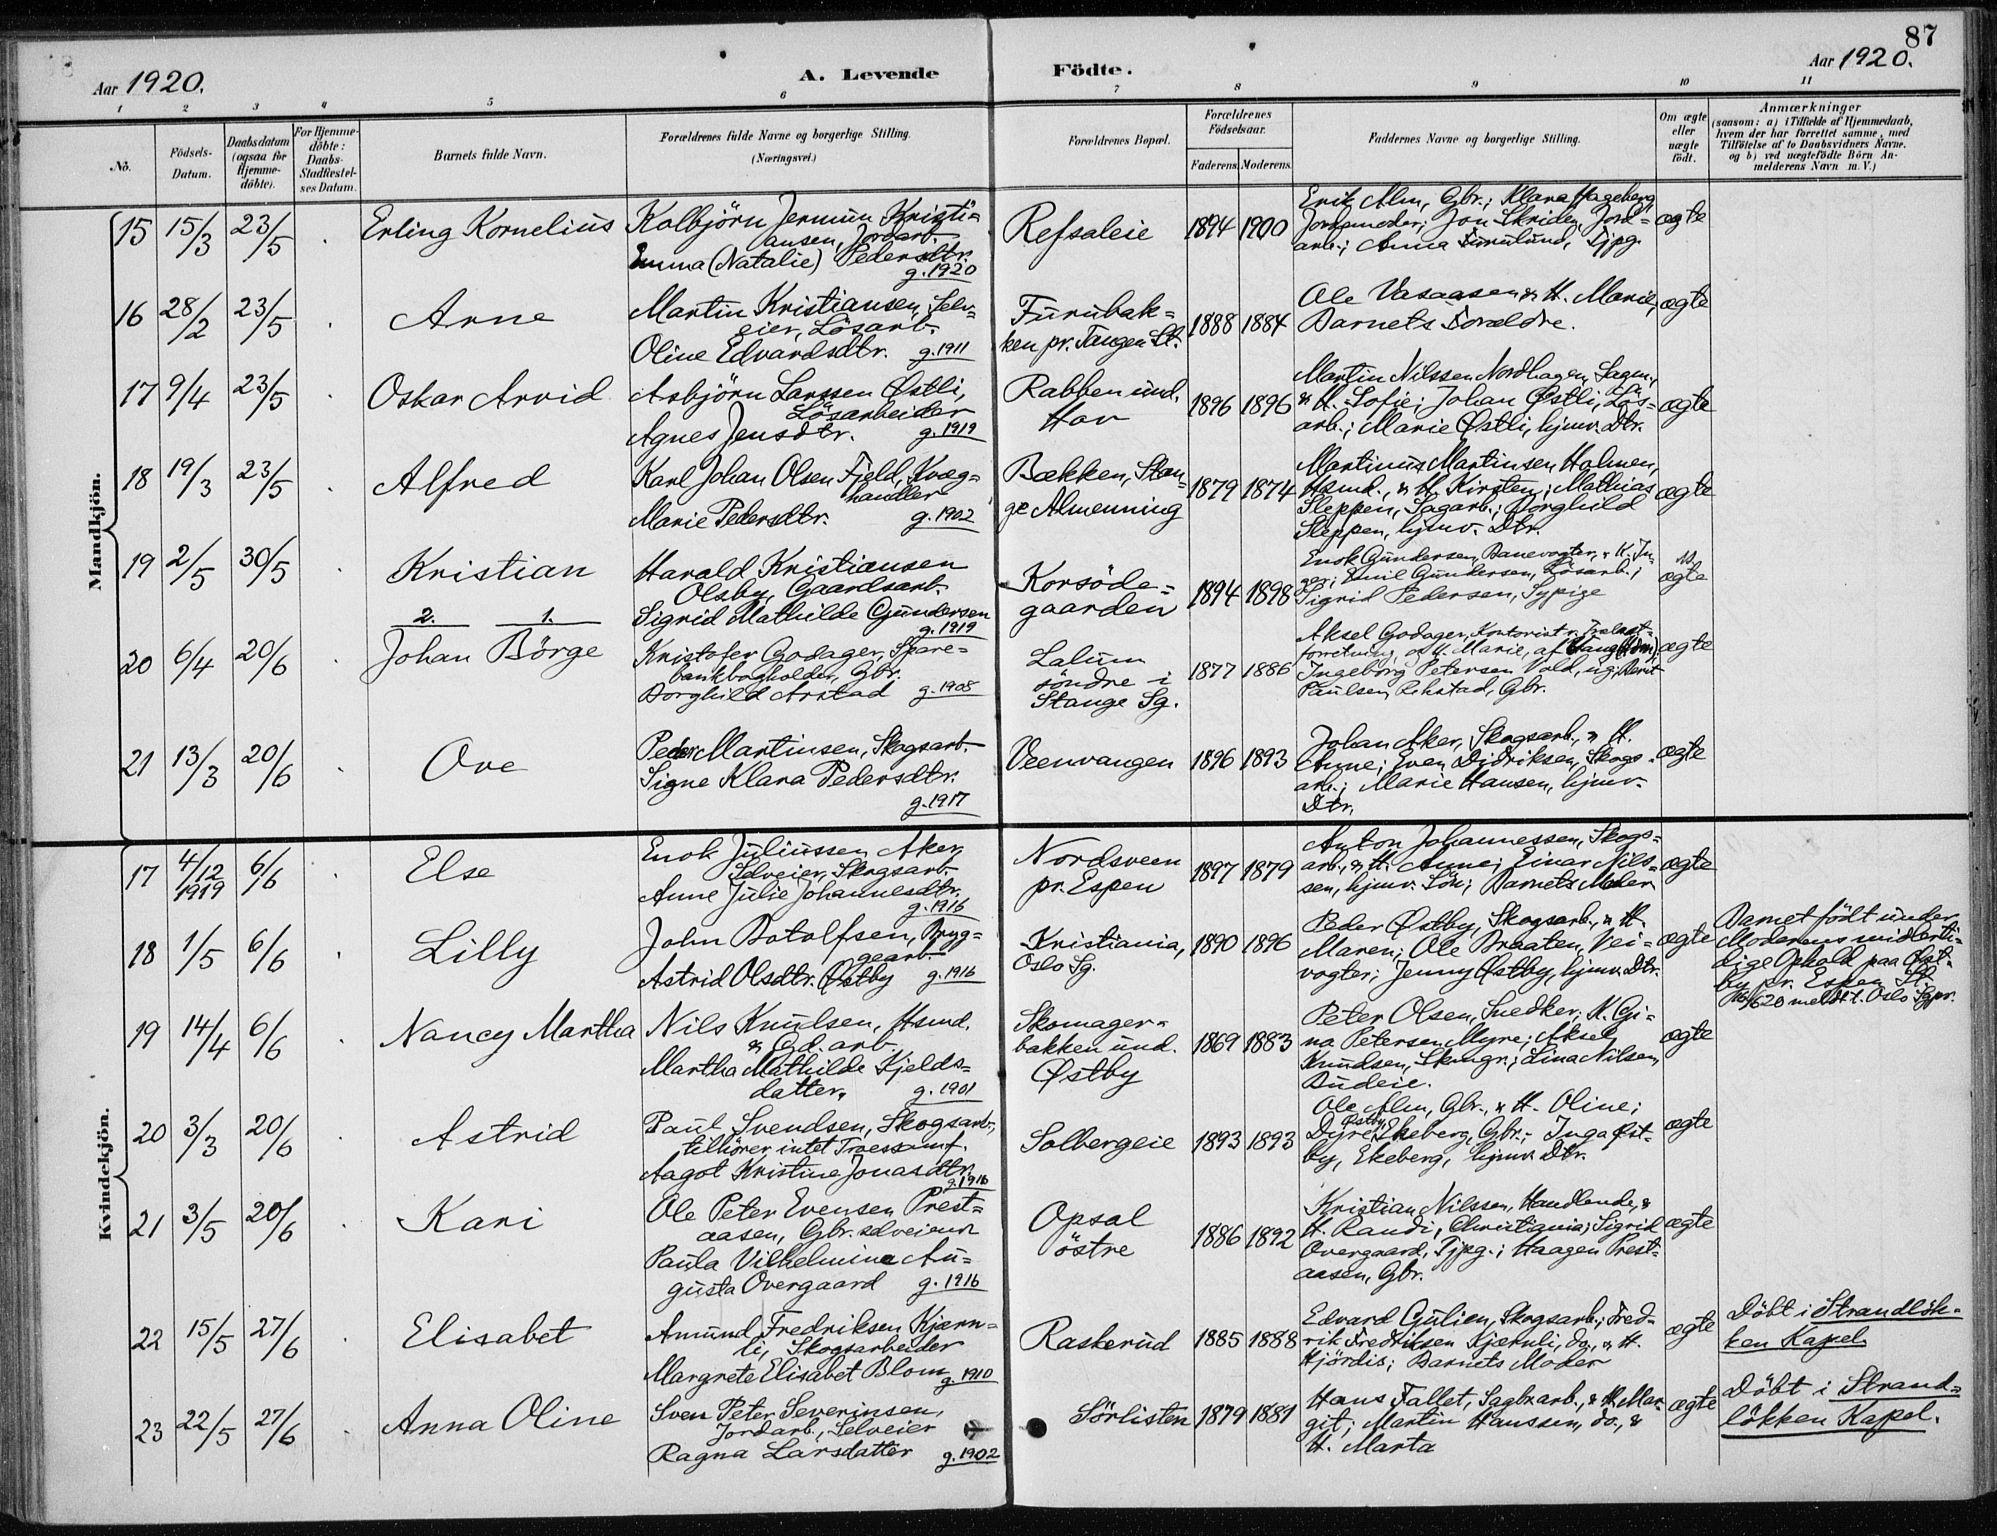 87
Aar 1920.
A. Levende Födte.
Aar 1920.
1 2 3 4 5 6 7 8 9 10 11
No.
Födsels-Datum.
Daabsdatum (ogsaa for Hjemme-döbte).
For Hjemme-döbte: Daabs-Stadfestel-ses Datum.
Barnets fulde Navn.
Forældrenes fulde Navne og borgerlige Stilling. (Næringsvei.)
Forældrenes Bopæl.
Forældrenes Födselsaar.
Faderens. Moderens.
Faddernes Navne og borgerlige Stilling.
Om ægte eller uægte födt.
Anmærkninger
(saasom: a) i Tilfælde af Hjemmedaab,
hvem der har forrettet samme, med
Tilföielse af to Daabsvidners Navne.
og b) ved uægtefödte Börn An-
melderens Navn m. V.)
Mandkjön.
15 15/3 23/5 Erling Kornelius
Kolbjörn Jermun Kristi=
ansen, Jordarb.
Emma (Natalie) Pedersdtr.
g. 1920
Refsaleie 1894 1900
Erik Alm, Gbr.; Klara Hageberg,
Jordmoder; Jon Skriden, Jord=
arb.; Anna Furulund, Tjpg.
ægte
16 28/2 23/5 Arne
Martin Kristiansen, Selv=
eier, Lösarb.
Oline Edvardsdtr. g. 1911
Furubak=
ken pr. Tangen St. 1888 1884
Ole Vasaasen & H. Marie,
Barnets Forældre.
ægte
17 9/4 23/5 Oskar Arvid
Asbjörn Larssen Østli,
Lösarbeider
Agnes Jensdtr. g. 1919
Rabben und.
Hov 1896 1896
Martin Nilssen Nordhagen, Sagm.,
& H. Sofie; Johan Østli, Lös=
arb.; Marie Østli, hjmv. Dtr.
ægte
18 19/3 23/5 Alfred
Karl Johan Olsen Fjeld, Kvæg=
handler
Marie Pedersdtr. g. 1902
Bækken, Stan=
ge Almenning 1879 1874
Martinus Martinsen Holmen,
Hsmd., & H. Kirsten; Mathias
Sleppen, Sagarb.; Borghild
Sleppen, hjmv. Dtr.
ægte
19 2/5 30/5 Kristian
Harald Kristiansen
Olsby, Gaardsarb.
Sigrid Mathilde Gundersen
g. 1919
Korsöde=
gaarden 1894 1898
Enok Gundersen, Banevogter, & H. In=
ger; Emil Gundersen, Lösarb.;
Sigrid Pedersen, Sypige
ægte
2. 1.
20 6/4 20/6 Johan Börge
Kristofer Godager, Spare=
bankbogholder, Gbr.
Borghild Arstad g. 1908
Lalum
söndre i
Stange Sg. 1877 1886
Aksel Godager, Kontorist
forretning, og H. Marie,
Ingeborg Petersen Vold, ug.;
Paulsen Rekstad, Gbr.
ægte
21 13/3 20/6 Ove
Peder Martinsen, Skogsarb.
Signe Klara Pedersdtr.
g. 1917
Veenvangen 1896 1893
Johan Aker, Skogsarb., & H.
Anne; Even Didriksen, Skogs=
arb.; Marie Hansen, hjmv.
Dtr.
ægte
Kvindekjön.
17 4/12 1919 6/6 Else
Enok Juliussen Aker,
Selveier, Skogsarb.
Anne Julie Johannesdtr.
g. 1916
Nordsveen
pr. Espen 1897 1879
Anton Johannessen, Skogs=
arb., & H. Anne; Einar Nils=
sen, hjmv. Sön; Barnets Moder
ægte
18 1/5 6/6 Lilly
John Botolfsen, Bryg=
gearb.
Astrid Olsdtr. Østby g. 1916
Kristiania,
Oslo Sg. 1890 1896
Peder Østby, Skogsarb., & H.
Maren; Ole Braaten, Vei=
vogter; Jenny Østby, hjmv. Dtr.
ægte
Barnet födt under
Moderens midlerti=
dige Ophold paa Øst=
by pr. Espen St.
meldt t. Oslo Sgpr.
19 14/4 6/6 Nancy Martha
Nils Knudsen, Hsmd.
& Gd. arb.
Martha Mathilde Kjelds=
datter. g. 1901
Skomager=
bakken und.
Østby 1869 1883
Peter Olsen, Snedker; K. Gi=
na Petersen Myre; Aksel
Knudsen, Skmgr.; Lina Nilsen,
Budeie.
ægte
20 3/3 20/6 Astrid
Paul Svendsen, Skogsarb.,
tilhörer intet Troessamf.
Aagot Kristine Jonasdtr.
g. 1916
Solbergeie 1893 1893
Ole Alm, Gbr., & H. Oline;
Dyre Østby, Ekeberg, Gbr.; Inga Øst=
by, Ekeberg, hjmv. Dtr.
ægte
21 3/5 20/6 Kari
Ole Peter Evensen Prest=
aasen, Gbr. selveiende
Paula Vilhelmine Au=
gusta Overgaard g. 1916
Opsal
östre 1886 1892
Kristian Nilssen, Handlende, &
H. Randi, Christiania; Sigrid
Overgaard, Tjpg.; Haagen Prest=
aasen, Gbr.
ægte
22 15/5 27/6 Elisabet
Amund Fredriksen Kjærn=
li, Skogsarbeider
Margrete Elisabet Blom g. 1910
Raskerud 1885 1888
Edvard Gulien, Skogsarb.; Fred=
rik Fredriksen Kjernli, do., & H.
Hjördis; Barnets Moder
ægte
Döbt i Strandlök=
ken Kapel.
23 22/5 27/6 Anna Oline
Sven Peter Severinsen,
Jordarb., Selveier
Ragna Larsdatter g. 1902
Sörlisten 1879 1881
Hans Fallet, Sagbrarb., & H. Mar=
git; Martin Hanssen, do., &
H. Marta
ægte
Döbt i Strand=
lökken Kapel.